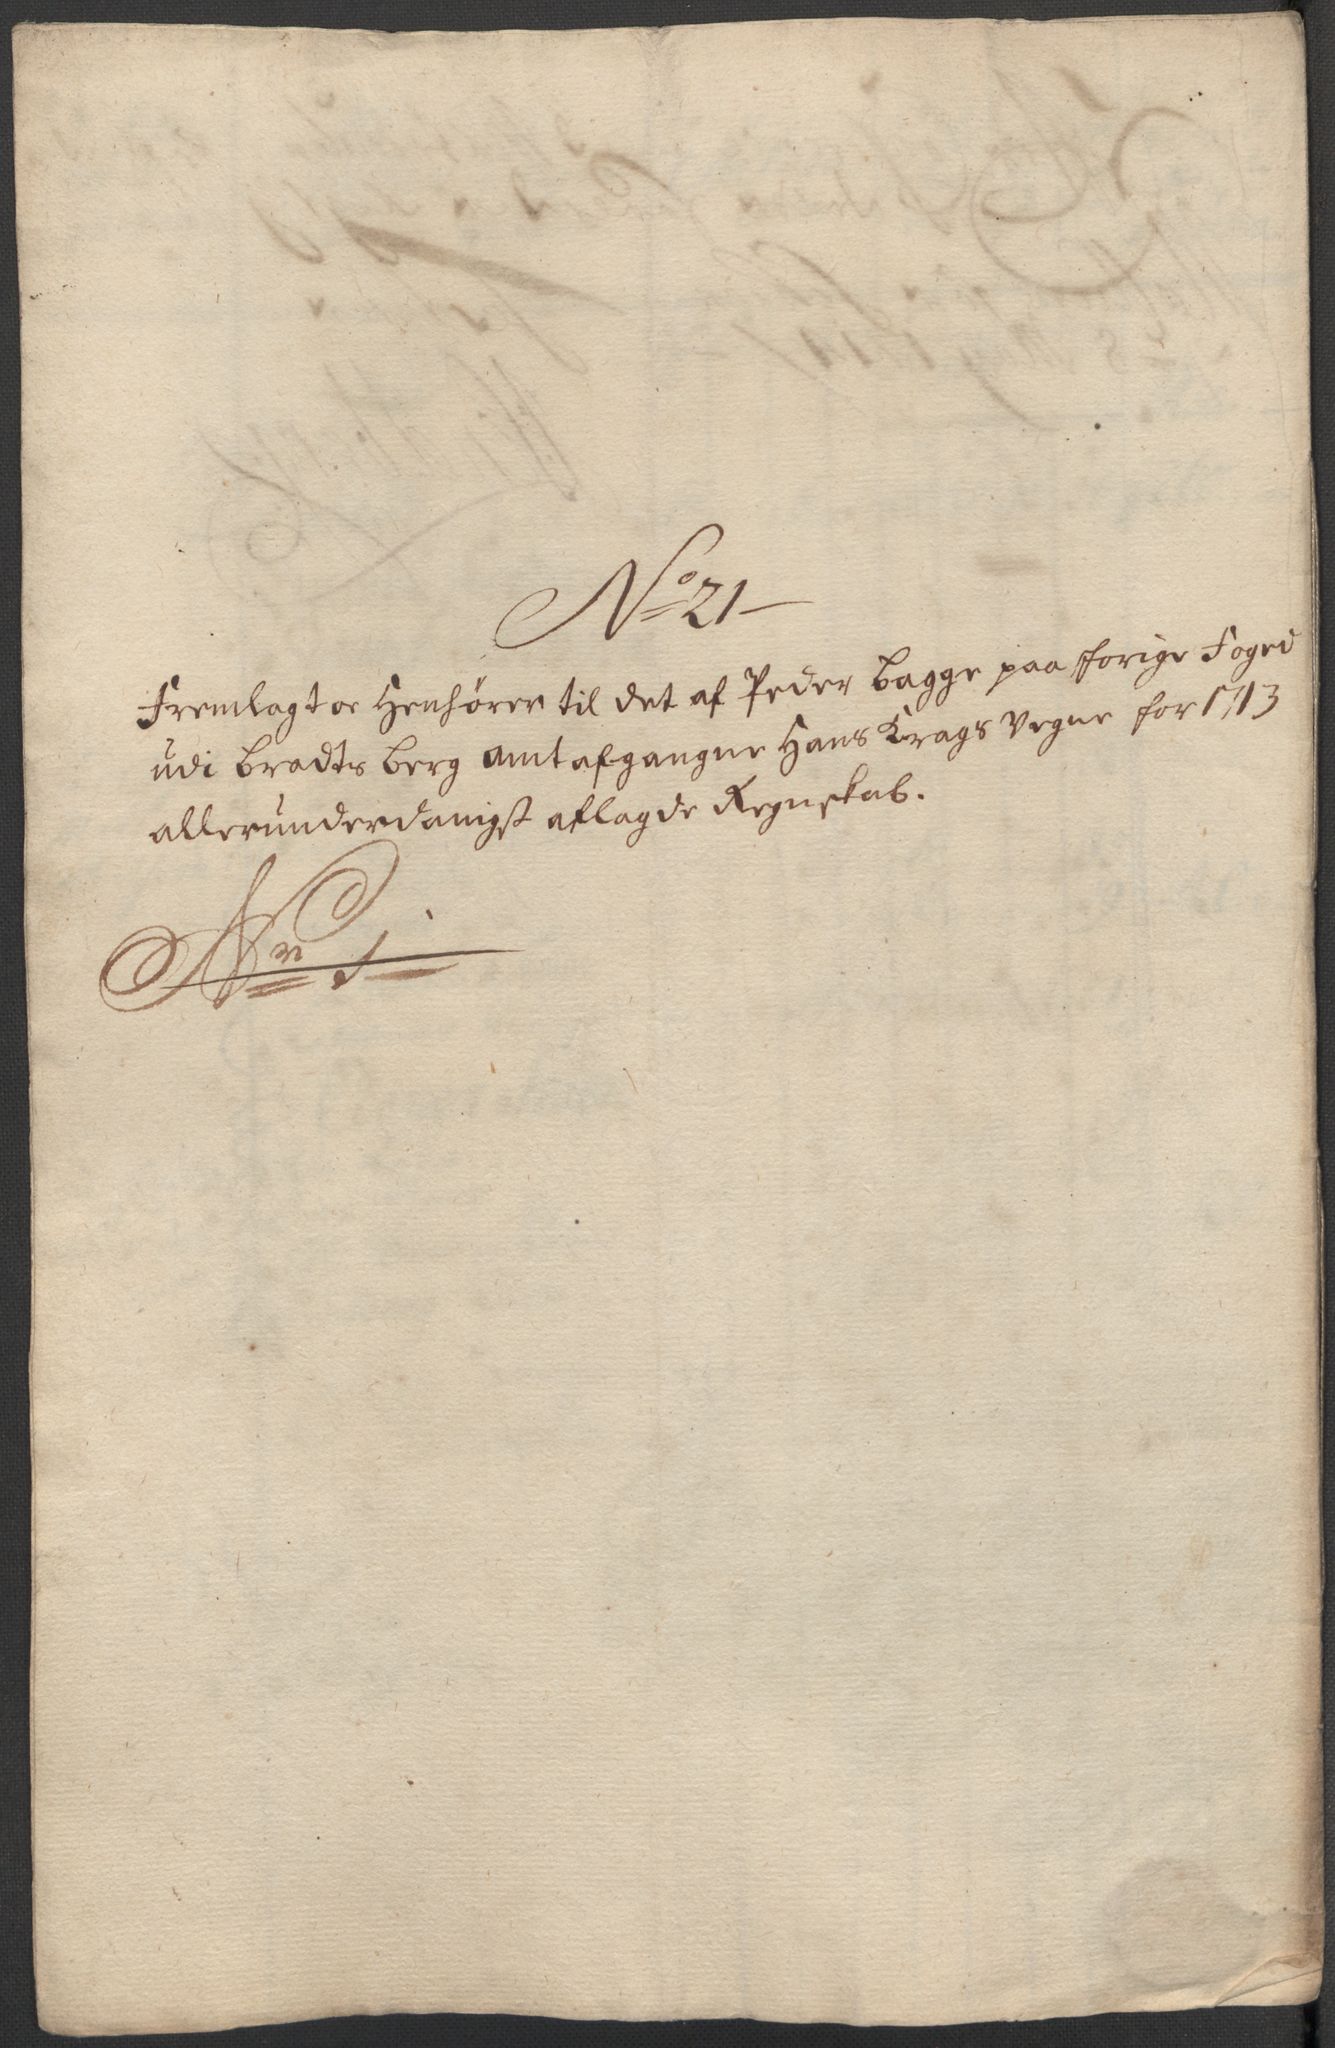 No 21
Fremlagt oc Henhører til det af Peder Bagge paa fforige Foged
udi Bradtsberg amt afgangne Hans Krags Vegne for 1713
allerunderdanigst aflagde Regnskab.
Nr 1